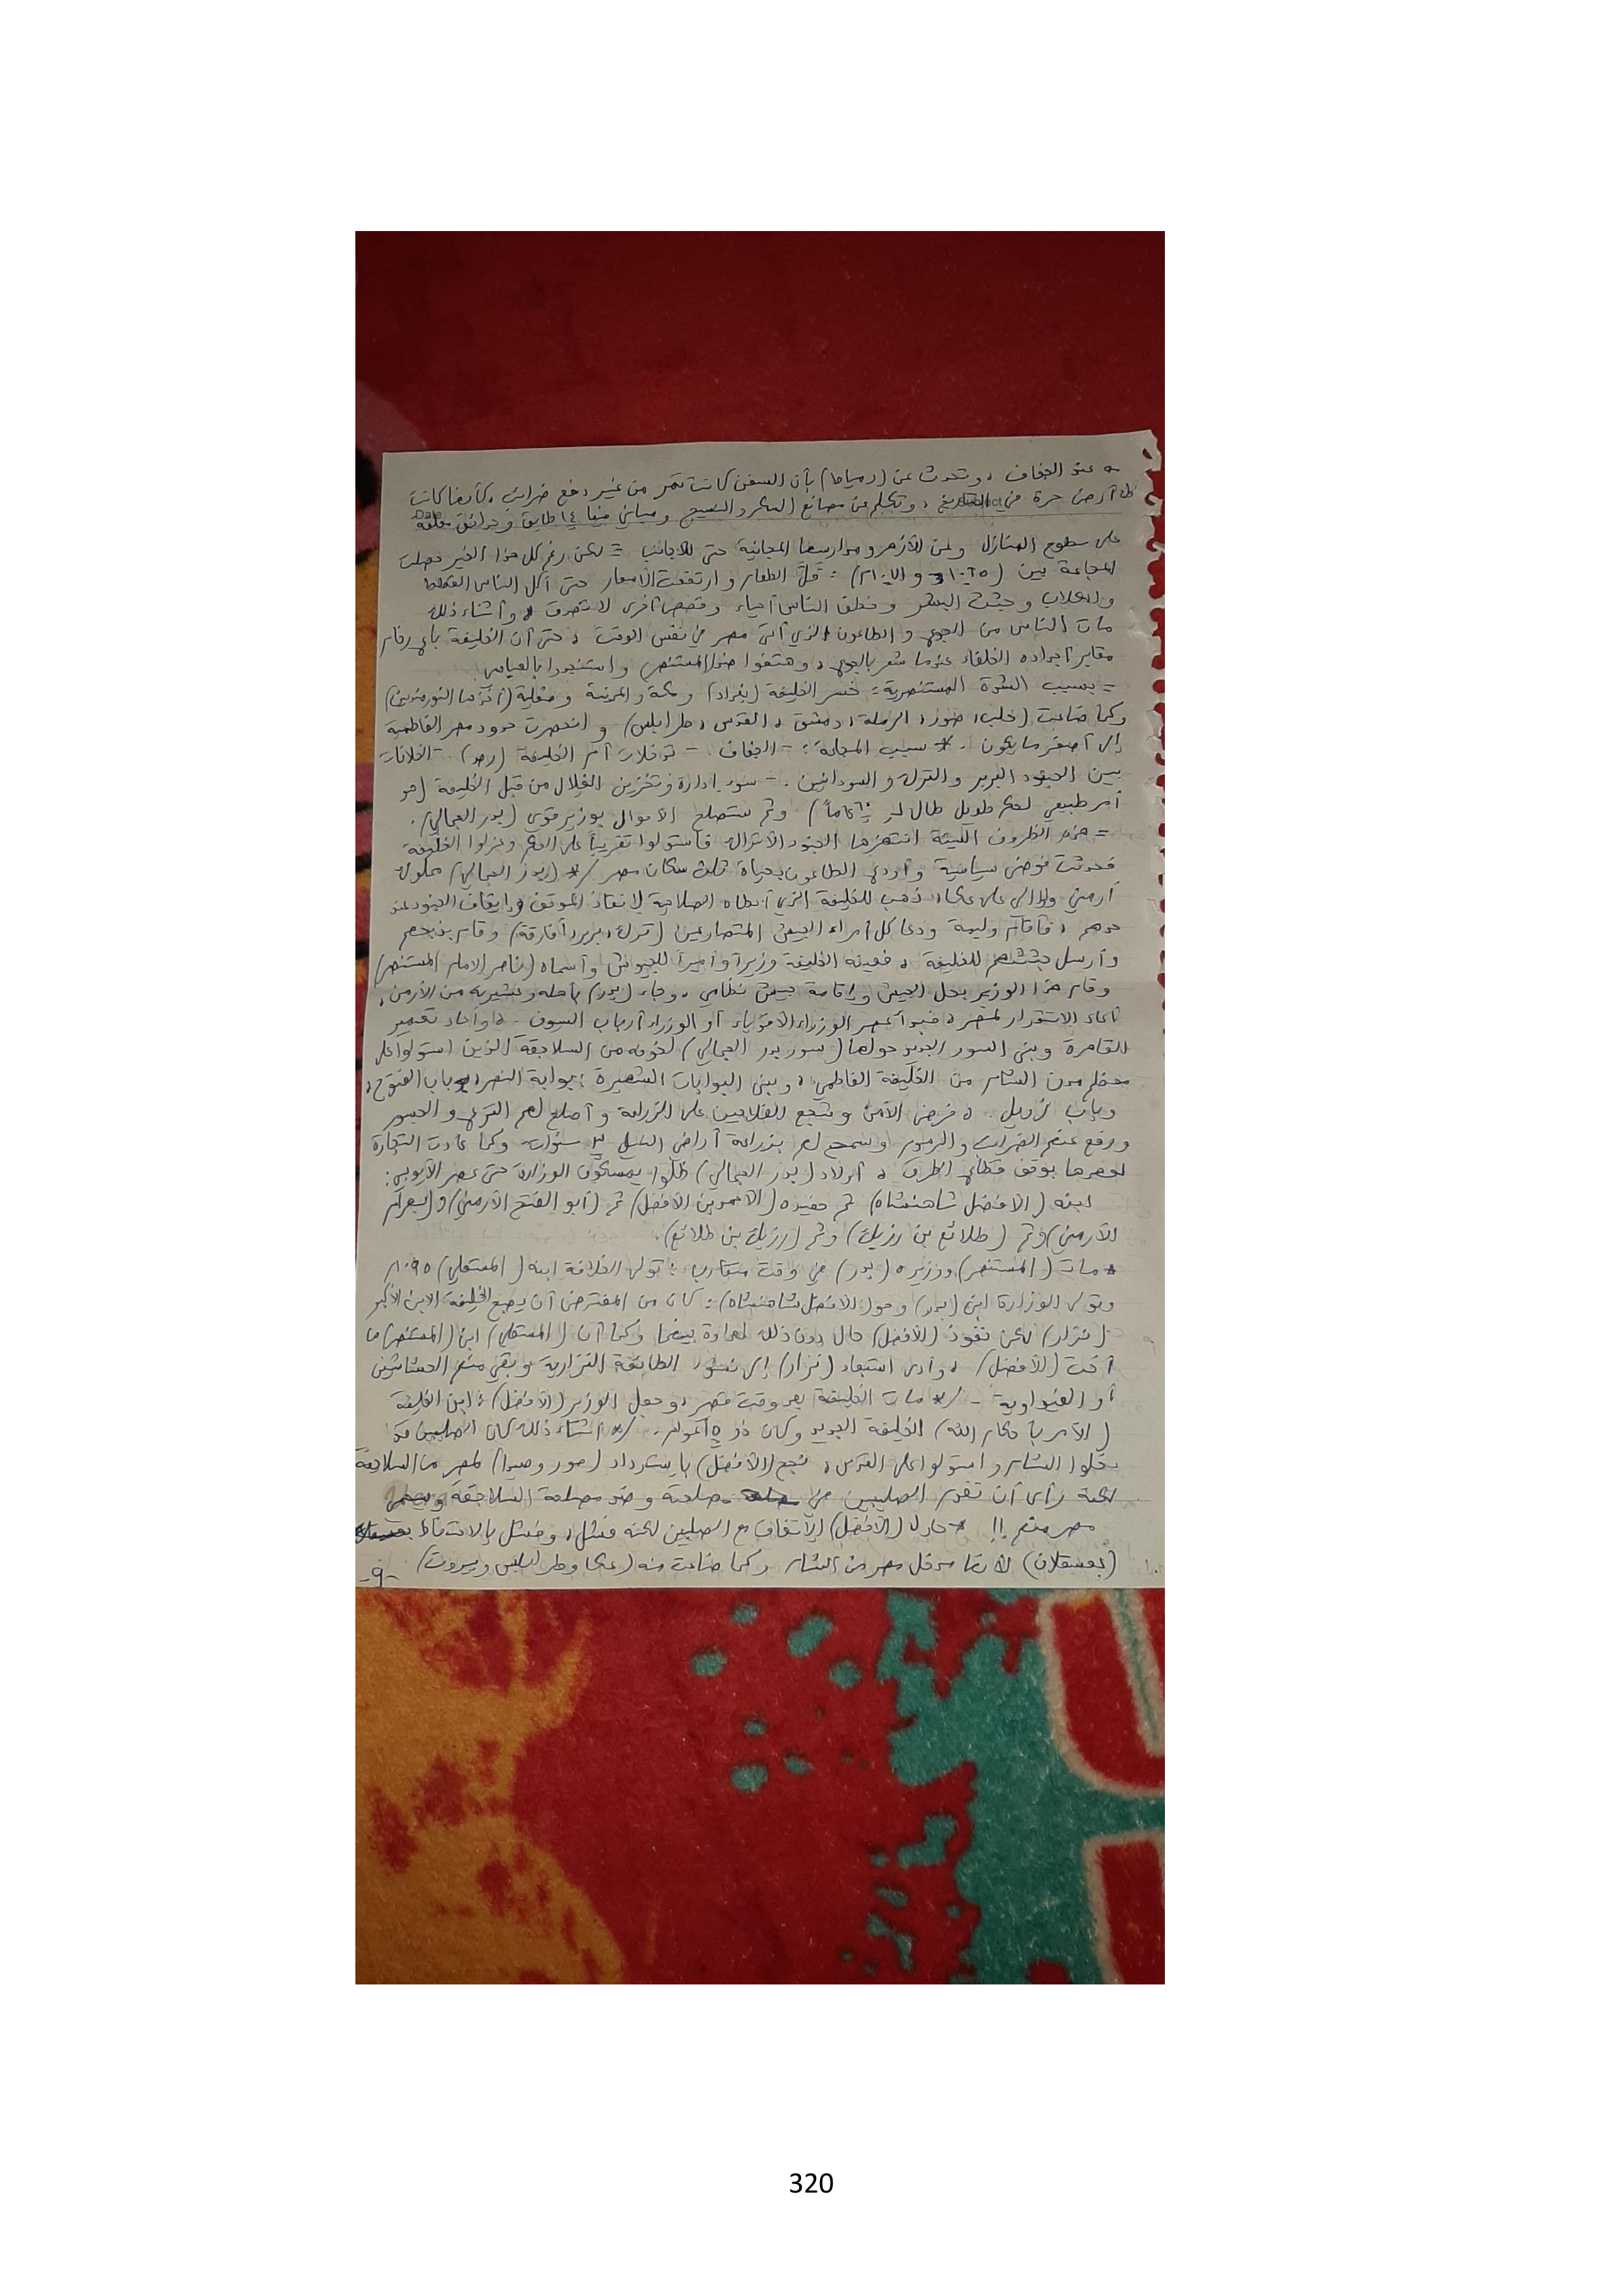 عند الجفاف ، وتحدث عن (دمياط) بأن السفن كانت تمر من غير دفع ضرائب ، كأنها كانت
أرض حرة في التاريخ ، وتكلم عن مصانع السكر والنسيج ومباني فيها ١٤ طابق وحدائق معلقة
Subject
Date
على سطوح المنازل وعن الأزهر ومدارسها المجانية حتى للأجانب = لكن رغم كل هذا الخير حصلت
المجاعة بين : قلّ الطعام وارتفعت الأسعار حتى أكل الناس القطط
والكلاب وجثث البشر وخطف الناس أحياء وقصص أخرى لا تصدق ، وأثناء ذلك
مات الناس من الجوع والطاعون الذي أتى مصر في نفس الوقت ، حتى أن الخليفة باع رخام
مقابر أجداده الخلفاء عندما شعر بالجوع ، وهتفوا ضد المستنصر واستنجدوا بالعباس
= بسبب الشدة المستنصرية = خسر الخليفة (بغداد) ومكة والمدينة وصقلية (أخذها النورمنديين)
وكما ضاعت (حلب ، صور ، الرملة ، دمشق ، القدس ، طرابلس) وانحصرت حدود مصر الفاطمية
إلى أصغر ما يكون . * سبب المجاعة : - الجفاف . - تدخلات أم الخليفة (رصد) . - الخلافات
بين الجنود البربر والترك والسودانيين . - سوء إدارة وتخزين الغلال من قبل الخليفة (هو
أمر طبيعي لحكم طويل طال لـ ٦٠ عاماً) وثم ستصلح الأحوال بوزير قوي (بدر الجمالي) .
= هذه الظروف السيئة انتهزها الجنود الأتراك فاستولوا تقريباً على الحكم وعزلوا الخليفة
فحدثت فوضى سياسية وأودى الطاعون بحياة ثلث سكان مصر /* (بدر الجمالي) مملوك
أرمني والي على عكا ، ذهب للخليفة الذي أعطاه الصلاحية لانقاذ الموقف وإيقاف الجنود عند
حدهم ، فأقام وليمة ودعا كل أمراء الجيش المتصارعين (ترك ، بربر ، أفارقة) وقام بذبحهم
وأرسل جثثهم للخليفة ، فعينه الخليفة وزيراً وأميراً للجيوش وأسماه (ناصر الإمام المستنصر)
وقام هذا الوزير بحل الجيش وإقامة جيش نظامي ، وجاء (بدر) بأهله وعشيرته من الأرمن ،
عاد الاستقرار لمصر ، فبدأ عصر الوزراء الأقوياء أو الوزراء أرباب السيوف . ، وأعاد تعمير
القاهرة وبنى السور الجديد حولها (سور بدر الجمالي) لخوفه من السلاجقة الذين استولوا على
معظم مدن الشام من الخليفة الفاطمي ، وبنى البوابات الشهيرة : بوابة النصر ، باب الفتوح ،
وباب زويل . ، فرض الأمن وشجع الفلاحين على الزراعة وأصلح لهم الترع والجسور
ورفع عنهم الضرائب والرسوم وسمح لهم بزراعة أراضي النيل ٣ سنوات وكما عادت التجارة
لعهدها بوقف قطاع الطرق ، أولاد (بدر الجمالي) ظلوا يمسكون الوزارة حتى عصر الأيوبي :
ابنه (الأفضل شاهنشاه) ثم حفيده (الأحمد بن الأفضل) ثم (أبو الفتح الأرمني) و (بهرام
الأرمني) وثم (طلائع بن رزيك) وثم (رزيك بن طلائع) .
* مات (المستنصر) ووزيره (بدر) في وقت متقارب : تولى الخلافة ابنه (المستعلي) ١٠٩٥م
وتولى الوزارة ابن (بدر) وهو (الأفضل شاهنشاه) : كان من المفترض أن يصبح الخليفة الابن الأكبر
(نزار) لكن نفوذ (الأفضل) حال دون ذلك لعداوة بينهما وكما أن (المستعلي) ابن (المستنصر) من
أخت (الأفضل) ، وأدى استبعاد (نزار) إلى نشوء الطائفة النزارية وبقي منهم الحشاشين
أو الفيداوية - /* مات الخليفة بعد وقت قصير ، وجعل الوزير (الأفضل) : ابن الخليفة
(الآمر بأحكام الله) الخليفة الجديد وكان ذو ٥ أعوام . /* أثناء ذلك كان الصليبين قد
دخلوا الشام واستولوا على القدس ، نجح (الأفضل) باسترداد (صور وصيدا) لمصر من السلاجقة
لكنه رأى أن تقدم الصليبين في صلحته وضد مصلحة السلاجقة
مصر منهم !! * حاول (الأفضل) الاتفاق مع الصليبين لكنه فشل ، وفشل بالاحتفاظ
(بعسقلان) لأنها مدخل مصر من الشام وكما ضاعت منه (عكا وطرابلس وبيروت)
-٩-
320